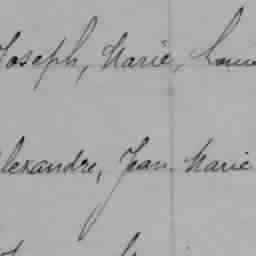 Joseph, Marie, Louis
Alexandre, Jean Marie